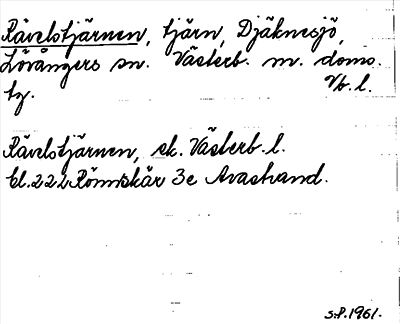 Rävelstjärnen, tjärn, Djäknesjö,
Lövångers sn. Västerb. m. doms.
tg. Vb. l.
Rävelstjärnen, ek. Västerb. l.
bl. 222 Rönnskär 3e Avastrand.
S.P. 1961.